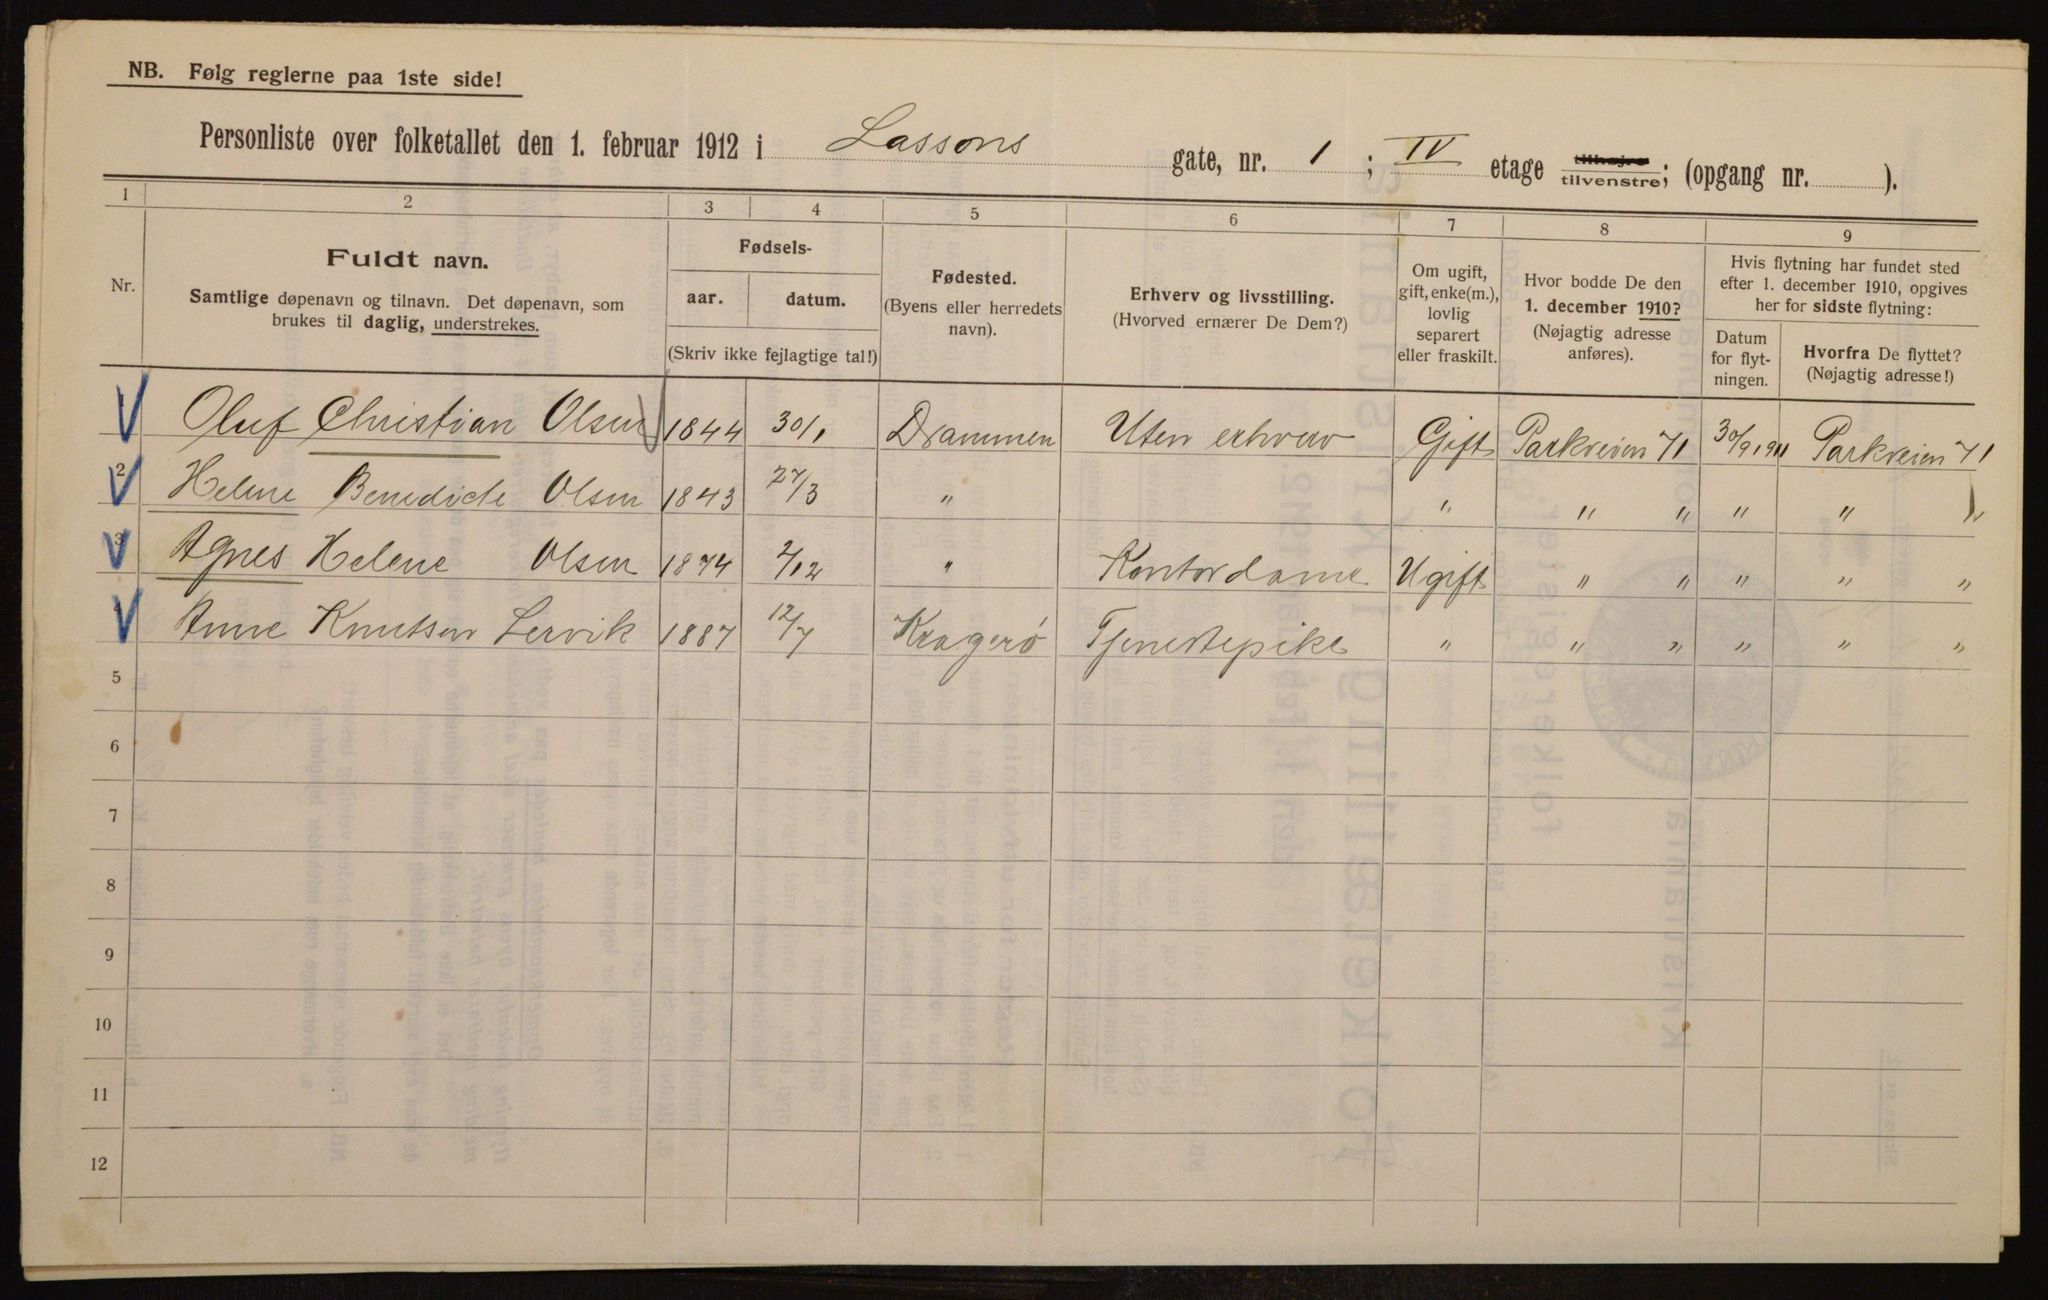 NB. Følg reglerne paa 1ste side!
Personliste over folketallet den 1. februar 1912 i Lassons gate, nr. 1 ; IV etage tilhøjre tilvenstre; (opgang nr. ).
1 2 3 4 5 6 7 8 9
Nr.
Fuldt navn.
Samtlige døpenavn og tilnavn. Det døpenavn, som
brukes til daglig, understrekes.
Fødsels-
aar. datum.
(Skriv ikke fejlagtige tal!)
Fødested.
(Byens eller herredets
navn).
Erhverv og livsstilling.
(Hvorved ernærer De Dem?)
Om ugift,
gift, enke(m.),
lovlig
separert
eller fraskilt.
Hvor bodde De den
1. december 1910?
(Nøjagtig adresse
anføres).
Hvis flytning har fundet sted
efter 1. december 1910, opgives
her for sidste flytning:
Datum
for flyt-
ningen.
Hvorfra De flyttet?
(Nøjagtig adresse!)
Oluf Christian Olsen 1844 30/1 Drammen Uten erhverv Gift Parkveien 71 30/9 1911 Parkveien 71
2 Helene Benedicte Olsen 1843 27/3 " " " " " " "
3 Agnes Helene Olsen 1874 2/12 " Kontordame Ugift " " " " "
Anne Knutsen Lervik 1887 12/7 Kragerö Tjenestepike " " " " " "
5
6
7
8
9
10
11
12